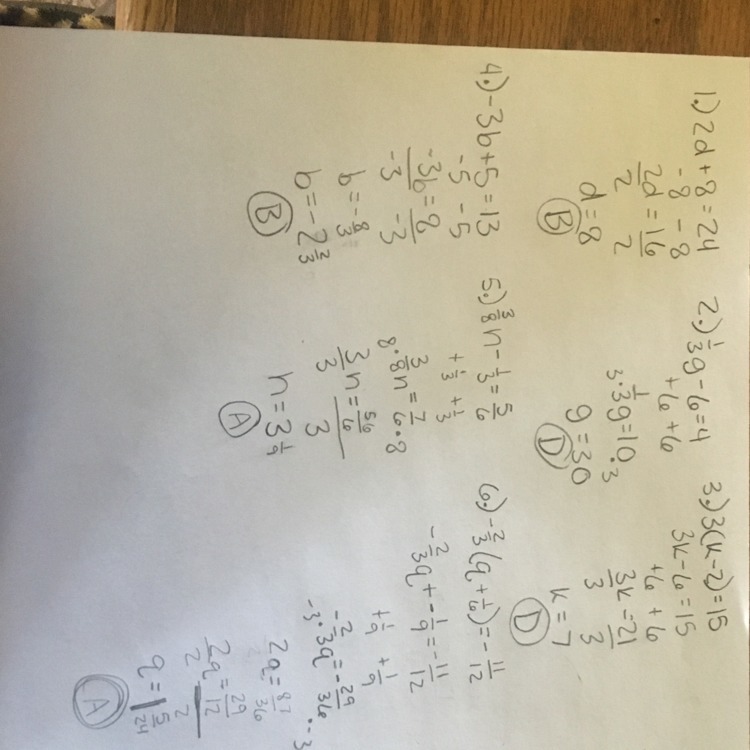 1.) 2d + 8 = 24
-8 -8
2d/2 = 16/2
d = 8
(B)
2.) 1/3g - 6 = 4
+6 +6
3 · 1/3g = 10 · 3
g = 30
(D)
3.) 3(k - 2) = 15
3k - 6 = 15
+6 +6
3k/3 = 21/3
k = 7
(D)
4.) -3b + 5 = 13
-5 -5
-3b/-3 = 8/-3
b = -8/3
b = -2 2/3
(B)
5.) 3/8n - 1/3 = 5/6
+1/3 +1/3
8 · 3/8n = 7/6 · 8
3n/3 = 56/6/3
n = 3 1/9
(A)
6.) -2/3(q + 1/6) = -11/12
-2/3q + -1/9 = -11/12
+1/9 +1/9
-3 · -2/3q = -29/36 · -3
2q = 87/36
2q/2 = 29/12/2
q = 1 5/24
(A)